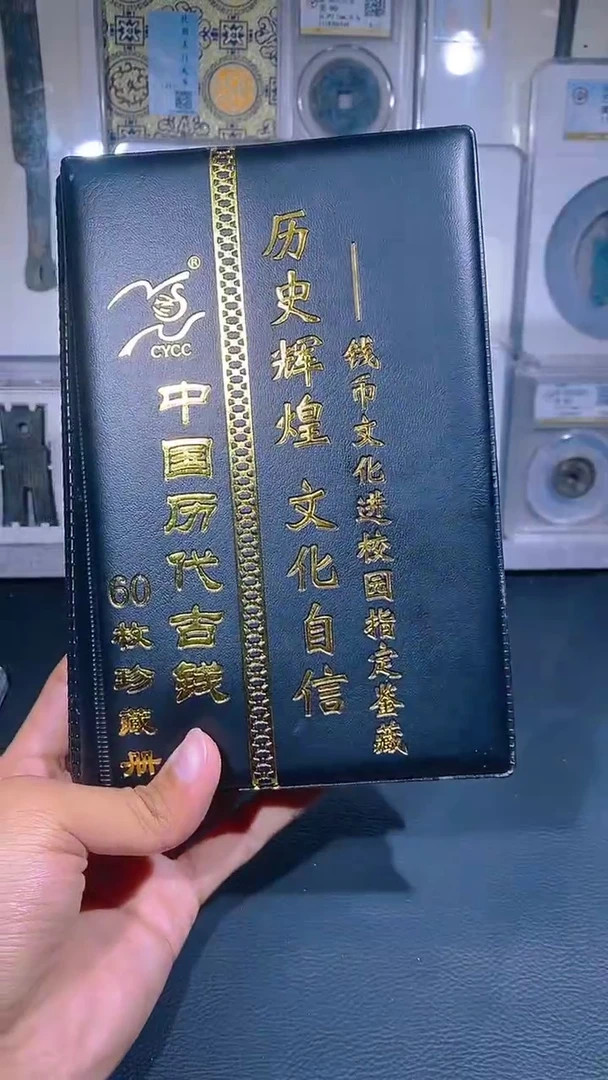 ®
CYCC
中国历代古钱
60枚珍藏册
历史辉煌 文化自信
——钱币文化进校园指定鉴藏